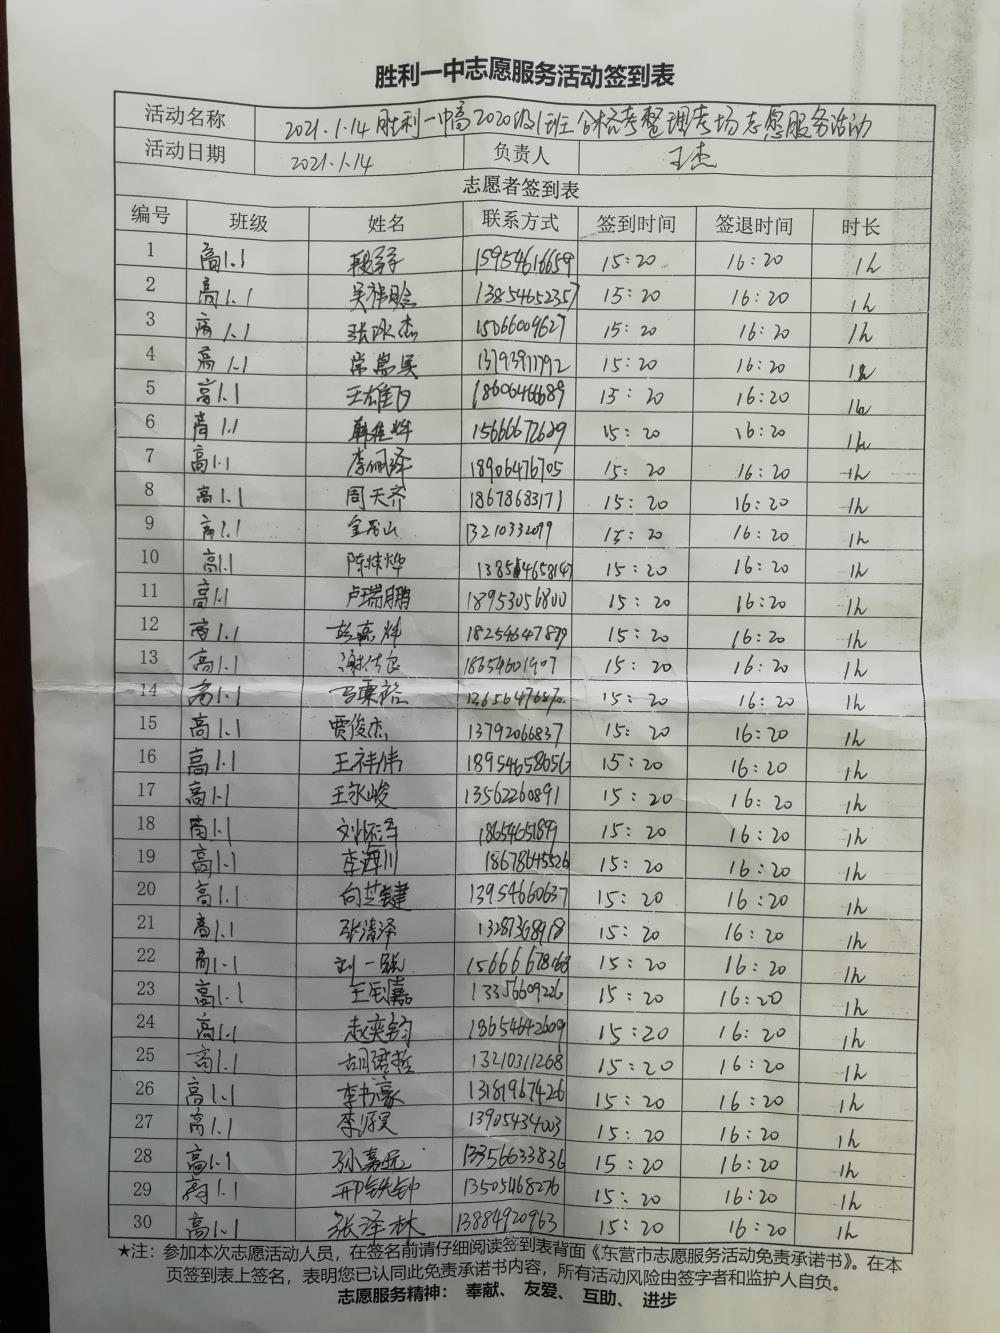 胜利一中志愿服务活动签到表
活动名称 2021.1.14 胜利一中高2020级1班合格考整理考场志愿服务活动
活动日期 2021.1.14 负责人 王杰
志愿者签到表
编号 班级 姓名 联系方式 签到时间 签退时间 时长
1 高1.1 15954616659 15:20 16:20 1h
2 高1.1 13854652357 15:20 16:20 1h
3 高1.1 15066009627 15:20 16:20 1h
4 高1.1 13793977792 15:20 16:20 1h
5 高1.1 王雄飞 15:20 16:20 1h
6 高1.1 15666672689 15:20 16:20 1h
7 高1.1 李佩泽 18906476705 15:20 16:20 1h
8 高1.1 周天齐 18678683171 15:20 16:20 1h
9 高1.1 13210332099 15:20 16:20 1h
10 高1.1 陈炜烨 13854658147 15:20 16:20 1h
11 高1.1 卢瑞鹏 18953056800 15:20 16:20 1h
12 高1.1 彭嘉炜 18254647879 15:20 16:20 1h
13 高1.1 18654601907 15:20 16:20 1h
14 高1.1 15:20 16:20 1h
15 高1.1 贾俊杰 13792066837 15:20 16:20 1h
16 高1.1 王祥伟 18954658656 15:20 16:20 1h
17 高1.1 王永峻 13562260891 15:20 16:20 1h
18 高1.1 刘怀泽 18654651899 15:20 16:20 1h
19 高1.1 李海川 18678645526 15:20 16:20 1h
20 高1.1 向芝键 13954660637 15:20 16:20 1h
21 高1.1 张清泽 13287368918 15:20 16:20 1h
22 高1.1 15666678168 15:20 16:20 1h
23 高1.1 13356609226 15:20 16:20 1h
24 高1.1 赵奕钧 18654642609 15:20 16:20 1h
25 高1.1 13210311268 15:20 16:20 1h
26 高1.1 李书豪 13181967426 15:20 16:20 1h
27 高1.1 李源昊 13905434003 15:20 16:20 1h
28 高1.1 孙嘉远 13356633836 15:20 16:20 1h
29 高1.1 邢铁钟 13505468276 15:20 16:20 1h
30 高1.1 张泽林 13884920963 15:20 16:20 1h
★注：参加本次志愿活动人员，在签名前请仔细阅读签到表背面《东营市志愿服务活动免责承诺书》。在本
页签到表上签名，表明您已认同此免责承诺书内容，所有活动风险由签字者和监护人自负。
志愿服务精神： 奉献、 友爱、 互助、 进步